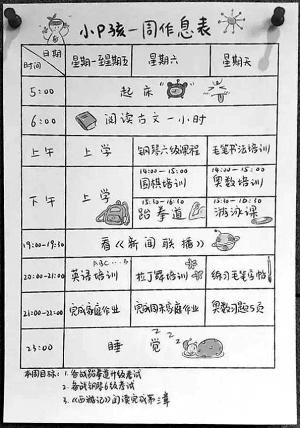 小P孩一周作息表
日期 时间 星期一至星期五 星期六 星期天
5:00 起床
6:00 阅读古文一小时
上午 上学 钢琴六级课程 毛笔书法培训
14:00-15:00 14:00-15:00
下午 上学 围棋培训 奥数培训
15:30-16:30 15:30-16:30
跆拳道 游泳课
19:00-19:30 看《新闻联播》
ABC...
20:00-21:00 英语培训 拉丁舞培训 练习毛笔字帖
21:00-22:00 完成家庭作业 完成周末家庭作业 奥数习题5页
23:00 睡觉 zzz
本周目标: 1. 备战跆拳道升级考试
2. 备战钢琴6级考试
3. 《西游记》阅读完成第三章